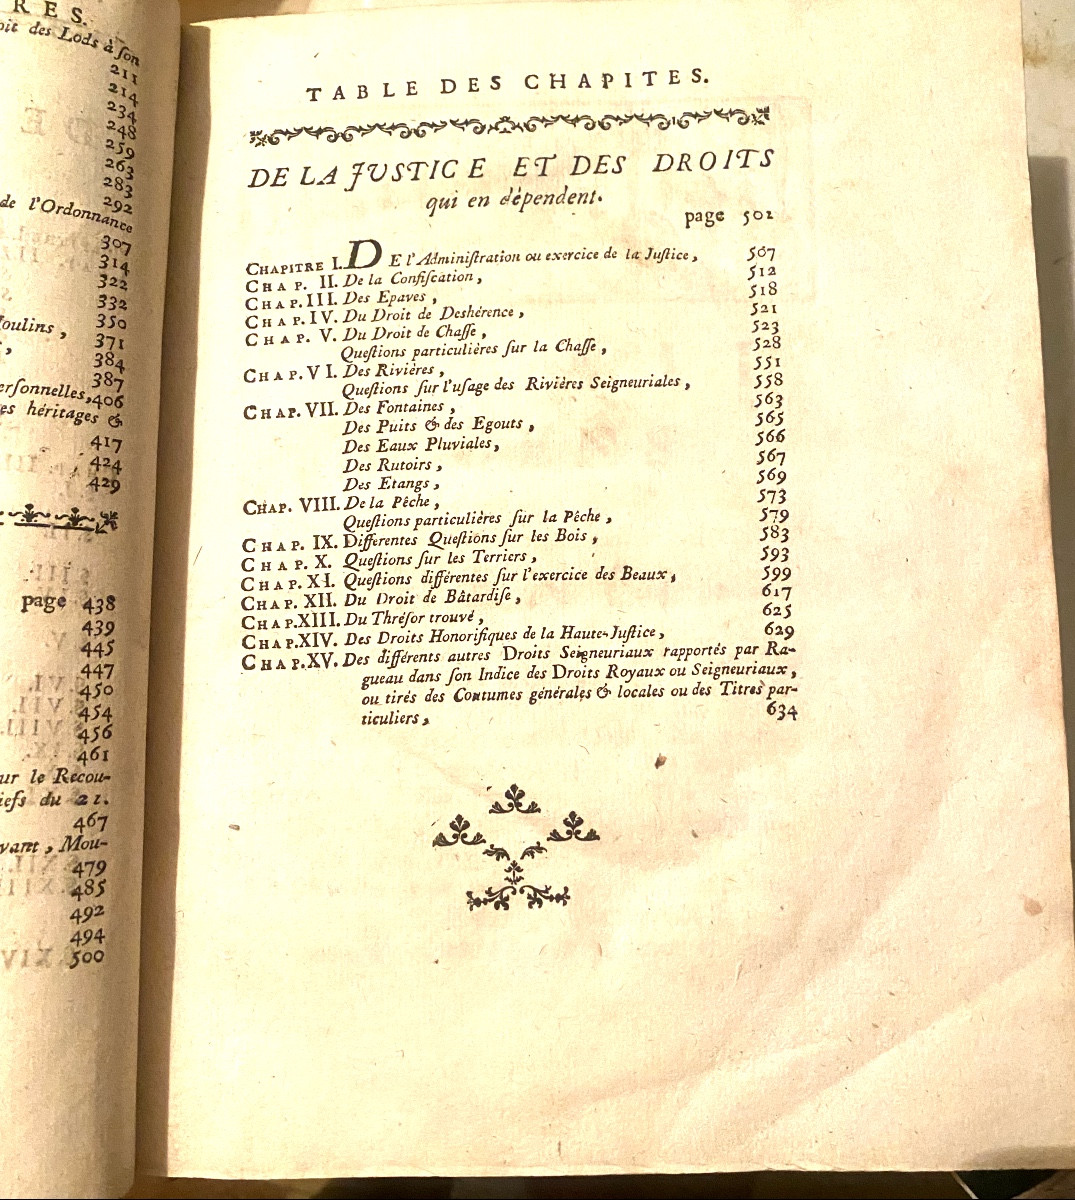 RES.
oit des Lods à ſon
211
214
234
248
259
263
283
292
de l'Ordonnance
307
314
322
332
350
oulins,
371
384
387
erſonnelles, 406
es héritages &
417
424
429
page 438
439
445
447
450
454
456
461
ur le Recou-
iefs du 21.
467
vant, Mou-
479
485
492
494
500
TABLE DES CHAPITES.
DE LA JUSTICE ET DES DROITS
qui en dépendent.
page 501
CHAPITRE I. DE l'Adminiſtration ou exercice de la Juſtice, 567
CHAP. II. De la Confiſcation, 512
CHAP. III. Des Epaves, 518
CHAP. IV. Du Droit de Deshérence, 521
CHAP. V. Du Droit de Chaſſe, 523
Queſtions particulières ſur la Chaſſe, 528
CHAP. VI. Des Rivières, 551
Queſtions ſur l'uſage des Rivières Seigneuriales, 558
CHAP. VII. Des Fontaines, 563
Des Puits & des Egouts, 565
Des Eaux Pluviales, 566
Des Rutoirs, 567
Des Etangs, 569
CHAP. VIII. De la Pêche, 573
Queſtions particulières ſur la Pêche, 579
CHAP. IX. Differentes Queſtions ſur les Bois, 583
CHAP. X. Queſtions ſur les Terriers, 593
CHAP. XI. Queſtions différentes ſur l'exercice des Beaux, 599
CHAP. XII. Du Droit de Bâtardiſe, 617
CHAP. XIII. Du Thréſor trouvé, 625
CHAP. XIV. Des Droits Honorifiques de la Haute-Juſtice, 629
CHAP. XV. Des différents autres Droits Seigneuriaux rapportés par Ra-
gueau dans ſon Indice des Droits Royaux ou Seigneuriaux,
ou tirés des Coutumes générales & locales ou des Titres par-
ticuliers, 634